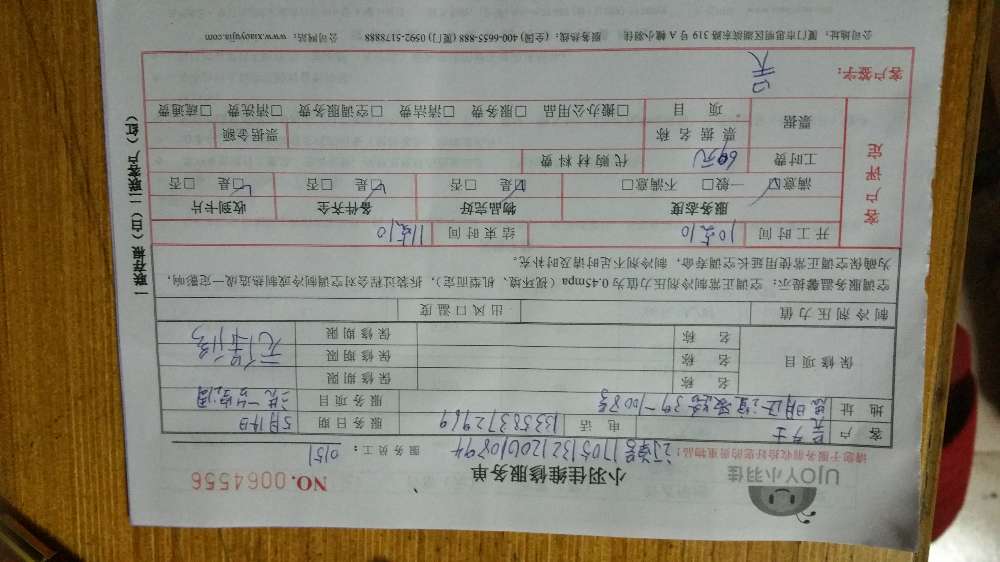 UJOY小羽佳
小羽佳维修服务单
NO.0064556
请您于服务前收拾好您的贵重物品!
订单号 17051321206010894
服务员工: 0151
客户 女士 电话 13358372969 服务日期 5月14日
地址 思明区 399-1008号 服务项目 洗一台空调
保修项目 名称 保修期限
名称 保修期限
名称 保修期限
制冷剂压力值 出风口温度
空调服务温馨提示: 空调正常制冷剂压力值为0.45mpa(视环境、机型而定), 拆装过程会对空调制冷或制热造成一定影响,
为确保空调正常使用延长空调寿命, 制冷剂不足时请及时补充。
客户评定
开工时间 10点10 结束时间 11点10
服务态度 物品完好 备件齐全 收到卡片
满意☑ 一般□ 不满意□ ☑是 □否 ☑是 □否 ☑是 □否
工时费 60元 代购材料费
票据 票据名称 票据金额
项目 □搬办公用品 □服务费 □清洁费 □空调服务费 □清洗费 □疏通费
客户签字:
公司地址: 厦门市思明区湖滨东路319号A幢小羽佳 服务热线: (全国) 400-6655-888 (厦门) 0592-5178888 公司网站: www.xiaoyujia.com
一联存根(白) 二联客户(红)